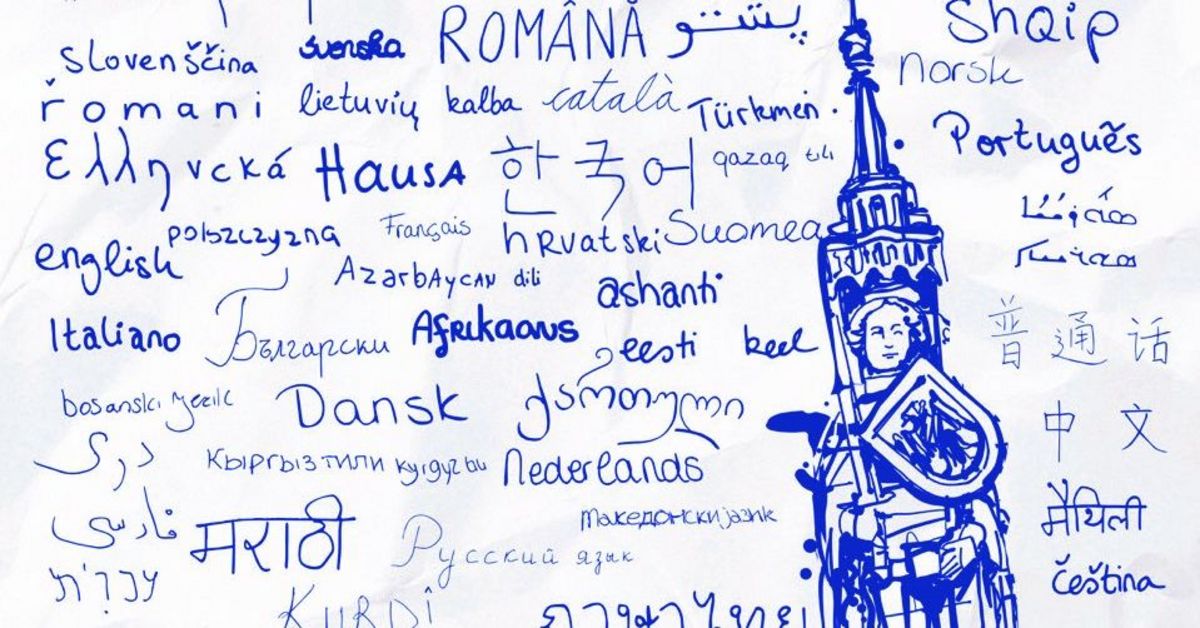 پښتو
ROMÂNĂ
Shqip
slovenščina
svenska
Norsk
romani
lietuvių kalba
català
Türkmen
Português
Ελληνικά
Hausa
한국어
qazaq tili
english
polszczyzna
Français
hrvatski
Suomea
Azərbaycan dili
ashanti
Italiano
Български
Afrikaans
eesti keel
普通话
bosanski jezik
Dansk
ქართული
中文
دری
кыргыз тили
Nederlands
فارسی
मराठी
Македонски јазик
मैथिली
Русский язык
עברית
čeština
KURDÎ
ภาษาไทย